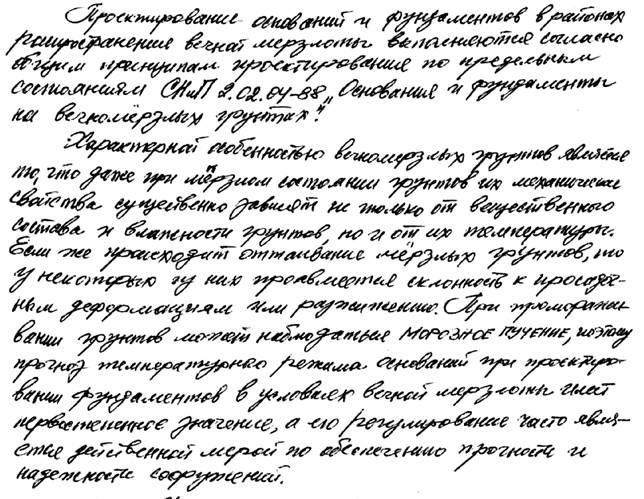 Проектирование оснований и фундаментов в районах
распространения вечной мерзлоты выполняются согласно
общим принципам проектирования по предельным
состояниям СНиП 2.02.04-88 „Основания и фундаменты
на вечномёрзлых грунтах".
Характерной особенностью вечномерзлых грунтов является
то, что даже при мёрзлом состоянии грунтов их механические
свойства существенно зависят не только от вещественного
состава и влажности грунтов, но и от их температуры.
Если же происходит оттаивание мёрзлых грунтов, то
у некоторых из них проявляется склонность к просадоч-
ным деформациям или разжижению. При проморажи-
вании грунтов может наблюдаться МОРОЗНОЕ ПУЧЕНИЕ, поэтому
прогноз температурного режима оснований при проектиро-
вании фундаментов в условиях вечной мерзлоты имеет
первостепенное значение, а его регулирование часто явля-
ется действенной мерой по обеспечению прочности и
надежности сооружений.